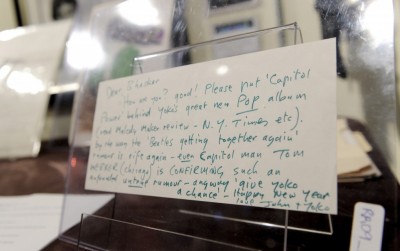 Dear Bhaskar
How are you? good! Please not 'Capitol
Power' behind Yoko's great new Pop album
(read Melody Maker review - N.Y. Times etc).
by the way the 'Beatles getting together again'
rumour is rife again - even Capitol man TOM
(Chicago) is CONFIRMING such an
untrue rumour - anyway! give Yoko
a chance - Happy New Year
love John & Yoko